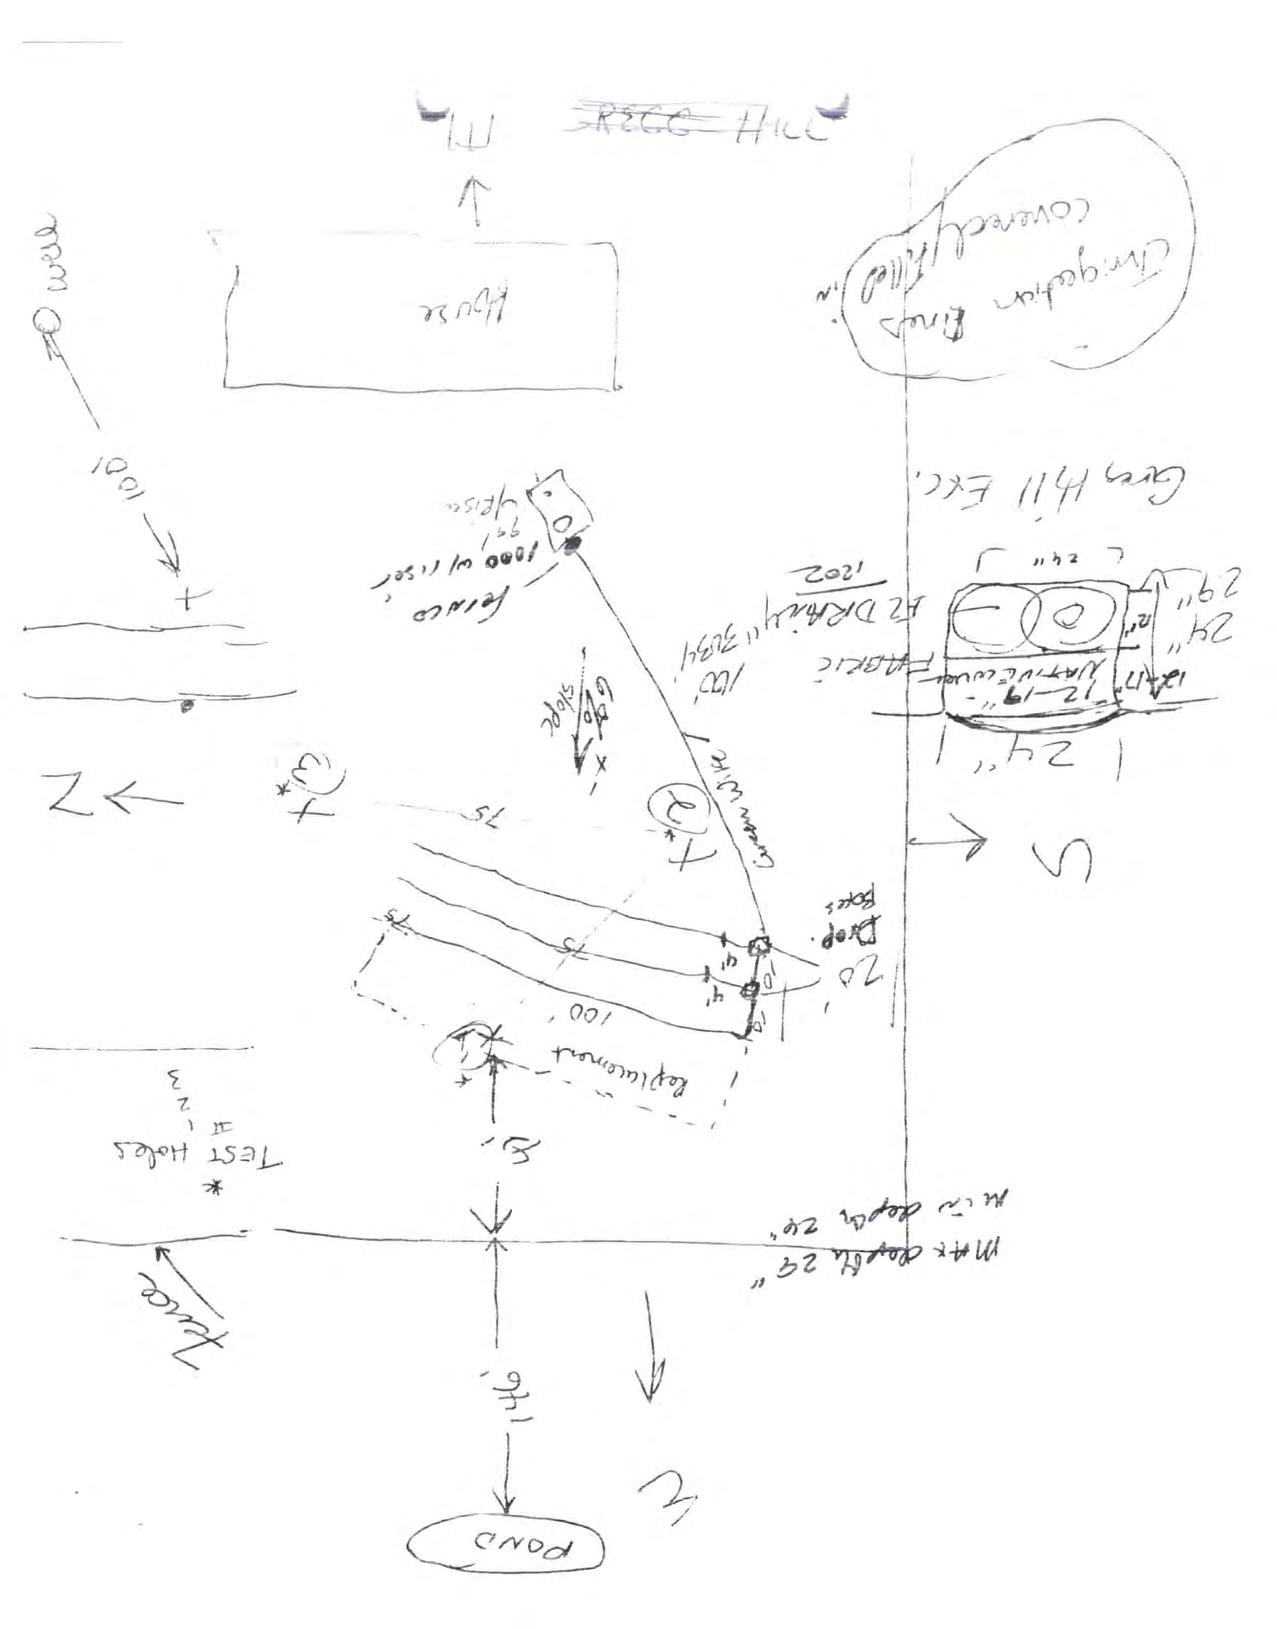 POND
W
MAX depth 29"
Min depth 24"
fence
*
TEST Holes
# 1
2
3
Replacement
100'
75
75
75
20'
Drop
Boxes
4'
4'
10'
10'
1
2
3
N
S
Green Wire
6%
slope
100' 3034
24"
NATIVE cover
12-19"
12-17"
FABRIC
EZ DRAIN
1202
12"
24"
29"
24"
Greg Hill Exc.
1000 w/ riser
w/ riser
101'
well
House
Irrigation lines
covered/filled
in
E
GREGG HILL